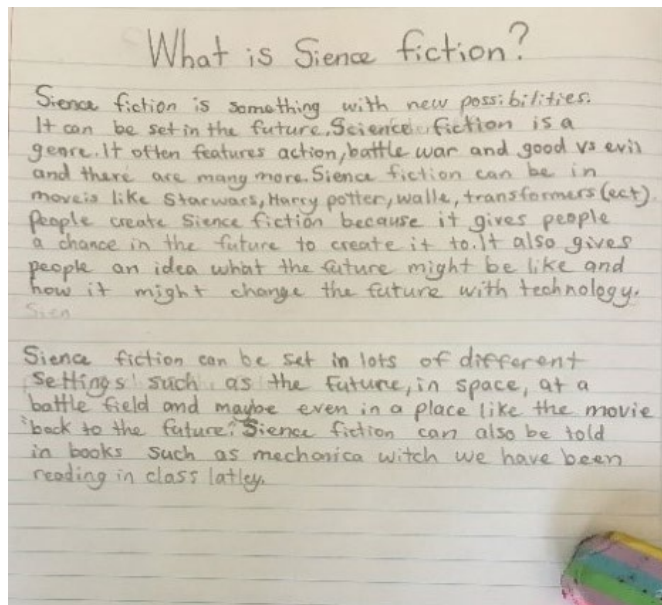 What is Sience fiction?
Sience fiction is something with new possibilities.
It can be set in the future. Science fiction is a
genre. It often features action, battle war and good vs evil
and there are many more. Sience fiction can be in
moveis like Starwars, Harry potter, walle, transformers (ect).
People create Sience fiction because it gives people
a chance in the future to create it to. It also gives
people an idea what the future might be like and
how it might change the future with technology.
Sien
Sience fiction can be set in lots of different
settings such as the future, in space, at a
battle field and maybe even in a place like the movie
"back to the future". Sience fiction can also be told
in books such as mechanica witch we have been
reading in class latley.